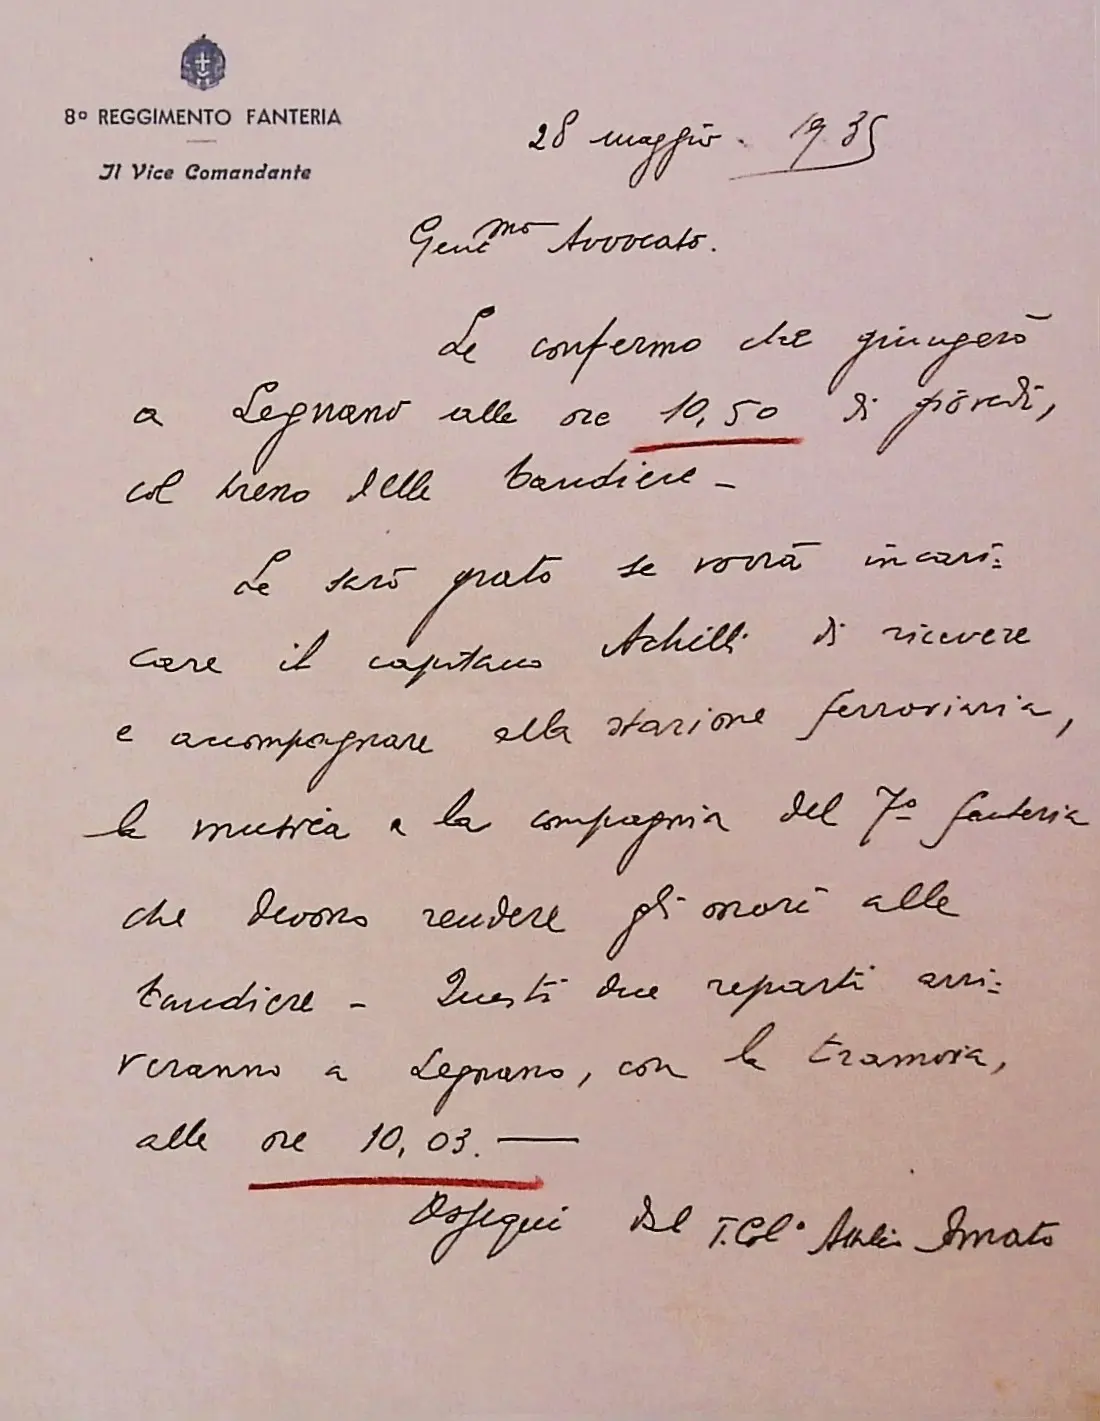 8º REGGIMENTO FANTERIA
Il Vice Comandante
28 maggio . 1935
Gent.mo Avvocato.
Le confermo che giungerò
a Legnano alle ore 10,50 di giovedì,
col treno delle bandiere –
Le sarò grato se vorrà incari=
care il capitano Achilli di ricevere
e accompagnare alla stazione ferroviaria,
la musica e la compagnia del 7º fanteria
che devono rendere gli onori alle
bandiere – Questi due reparti arri=
veranno a Legnano, con la tramvia,
alle ore 10,03. —
Ossequi del T.Colº Attilio Amato